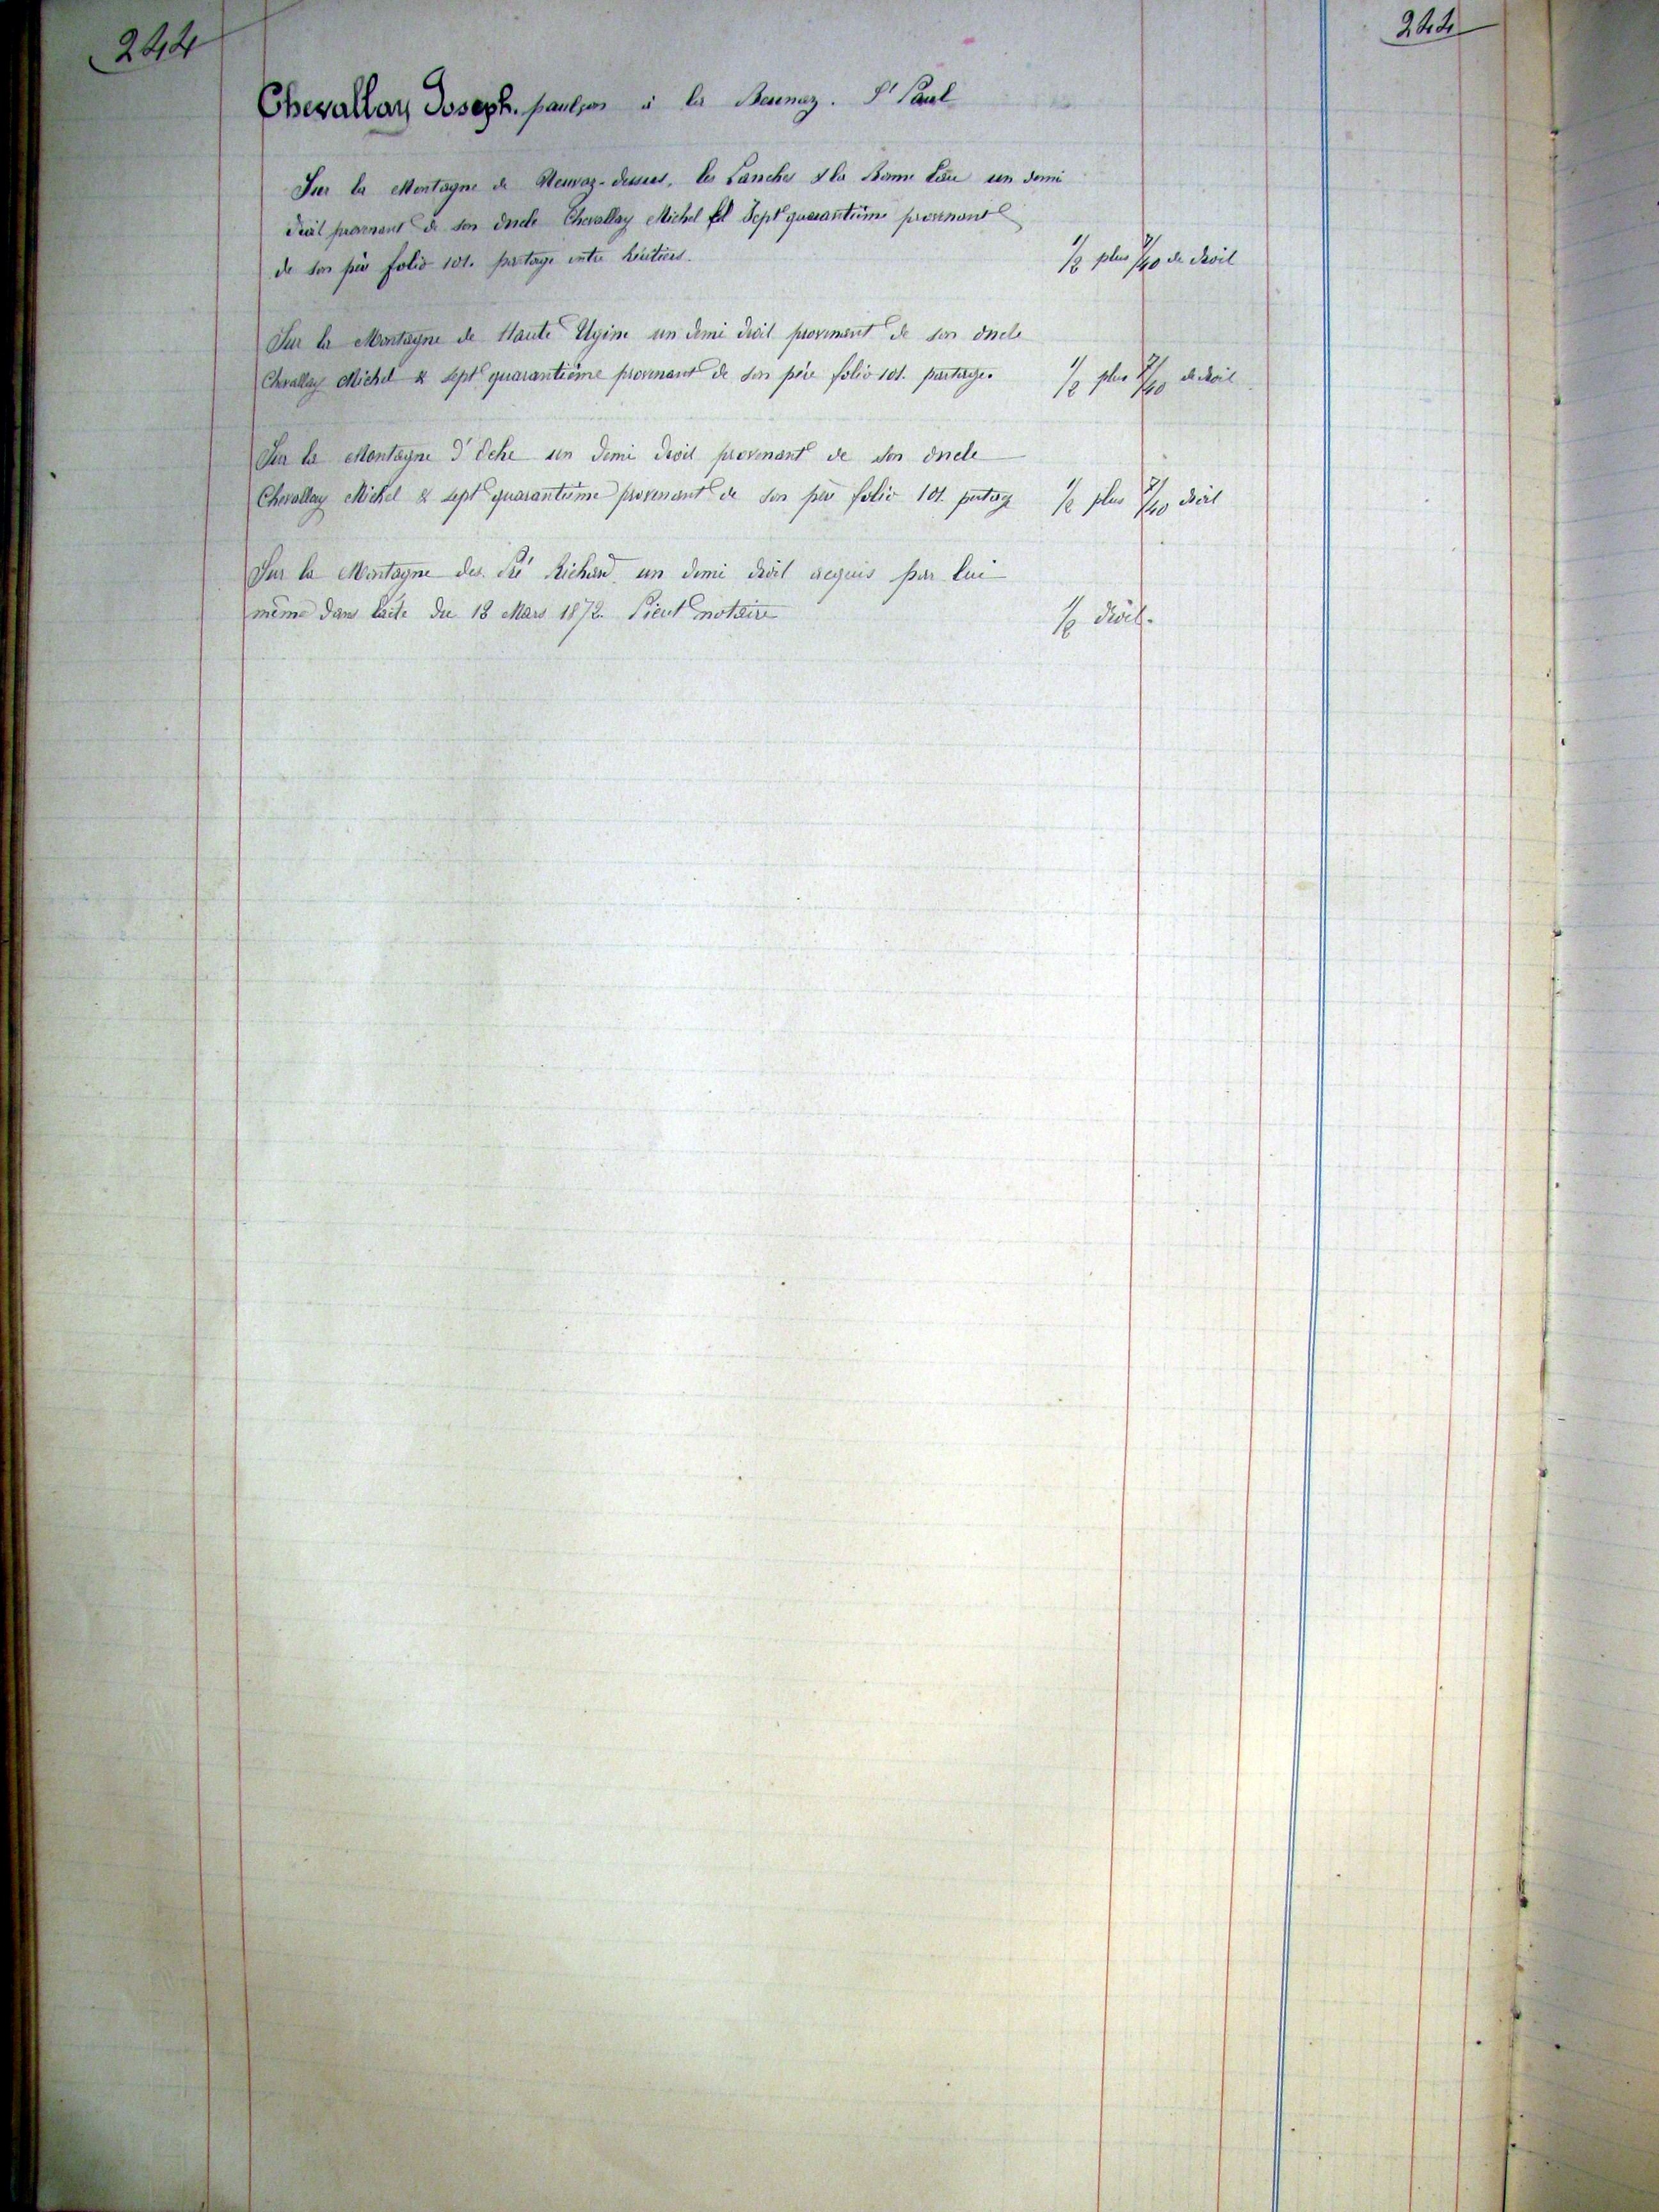 244
244
Chevallay Joseph. paulçon à la Beunaz. St Paul
Sur la Montagne de Neuvaz-dessus, les Lanches & la Bonne Eau un demi
droit provenant de son oncle Chevallay Michel et Sept quarantième provenant
de son père folio 101. partage entre héritiers.
1/2 plus 7/40 de droit
Sur la Montagne de Haute Ugine un demi droit provenant de son oncle
Chevallay Michel & sept quarantième provenant de son père folio 101. partage.
1/2 plus 7/40 de droit
Sur la Montagne d'Oche un demi droit provenant de son oncle
Chevallay Michel & sept quarantième provenant de son père folio 101. partage
1/2 plus 7/40 droit
Sur la Montagne des Pré Richard un demi droit acquis par lui
même dans l'acte du 18 Mars 1872. notaire
1/2 droit.